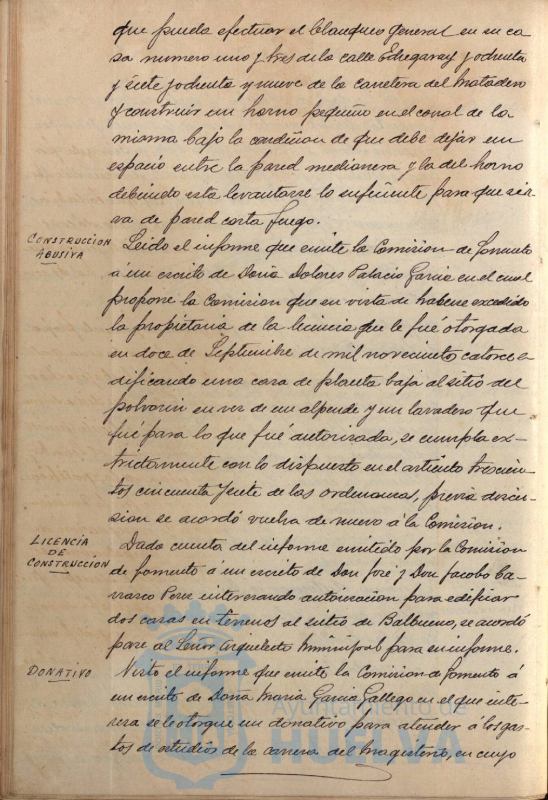 que pueda efectuar el blanqueo general en su ca-
sa numero uno y tres de la calle Echegaray y ochenta
y siete y ochenta y nueve de la carretera del Matadero
y construir un horno pequeño en el corral de la
misma bajo la condicion de que debe dejar un
espacio entre la pared medianera y la del horno
debiendo esta levantarse lo suficiente para que sir-
va de pared corta fuego.
CONSTRUCCION
ABUSIVA
Leido el informe que emite la Comision de fomento
á un escrito de Doña Dolores Palacio Garcia en el cual
propone la Comision que en vista de haberse excedido
la propietaria de la licencia que le fué otorgada
en doce de Septiembre de mil novecientos catorce e-
dificando una casa de planta baja al sitio del
polvorin en vez de un alpende y un lavadero que
fué para lo que fué autorizada, se cumpla ex-
trictamente con lo dispuesto en el articulo trescien-
tos cincuenta y siete de las ordenanzas, previa discu-
sion se acordó vuelva de nuevo á la Comision.
LICENCIA
DE
CONSTRUCCION
Dada cuenta del informe emitido por la Comision
de fomento á un escrito de Don José y Don Jacobo Ca-
rrasco Perez interesando autorizacion para edificar
dos casas en terrenos al sitio de Balbueno, se acordó
pase al Señor Arquitecto Municipal para su informe.
DONATIVO
Visto el informe que emite la Comision de fomento á
un escrito de Doña Maria Garcia Gallego en el que inte-
resa se le otorgue un donativo para atender á los gas-
tos de estudios de la carrera del Magisterio, en cuyo
Ayuntamiento de